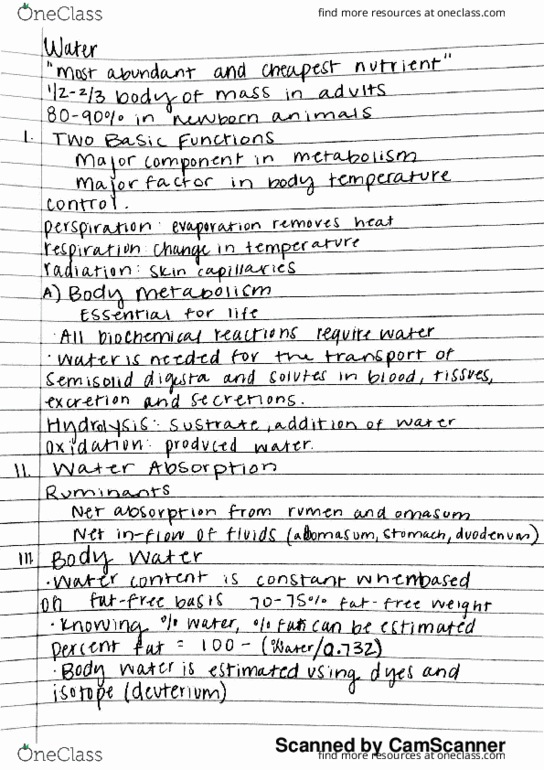 OneClass
find more resources at oneclass.com
Water
"most abundant and cheapest nutrient"
1/2-2/3 body of mass in adults
80-90% in newborn animals
I. Two Basic Functions
Major component in metabolism
Major factor in body temperature
control.
perspiration: evaporation removes heat
respiration: change in temperature
radiation: skin capillaries
A) Body metabolism
Essential for life
·All biochemical reactions require water
·Water is needed for the transport of
semisolid digesta and solutes in blood, tissues,
excretion and secretions.
Hydrolysis: sustrate, addition of water
Oxidation: produced water.
II. Water Absorption
Ruminants
Net absorption from rumen and omasum
Net in-flow of fluids (abomasum, stomach, duodenum)
III Body Water
·Water content is constant when based
on fat-free basis 70-75% fat-free weight
·Knowing % water, % fat can be estimated
percent fat = 100 - (Water/0.732)
·Body water is estimated using dyes and
isotope (deuterium)
Scanned by CamScanner
OneClass
find more resources at oneclass.com